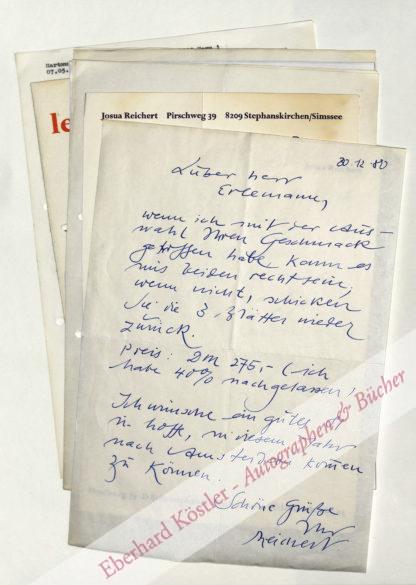 07.05.
le
Josua Reichert Pirschweg 39 8209 Stephanskirchen/Simssee
30.12.80
Lieber Herr
Erlemann,
wenn ich mit der Aus-
wahl Ihren Geschmack
getroffen habe, kann es
uns beiden recht sein;
wenn nicht, schicken
Sie die 3 Blätter wieder
zurück.
Preis: DM 275,- (ich
habe 40% nachgelassen)
Ich wünsche ein gutes
u. hoffe, in diesem Jahr
nach Amsterdam kommen
zu können.
Schöne Grüße
Ihr
Reichert
Eberhard Köstler - Autographen & Bücher